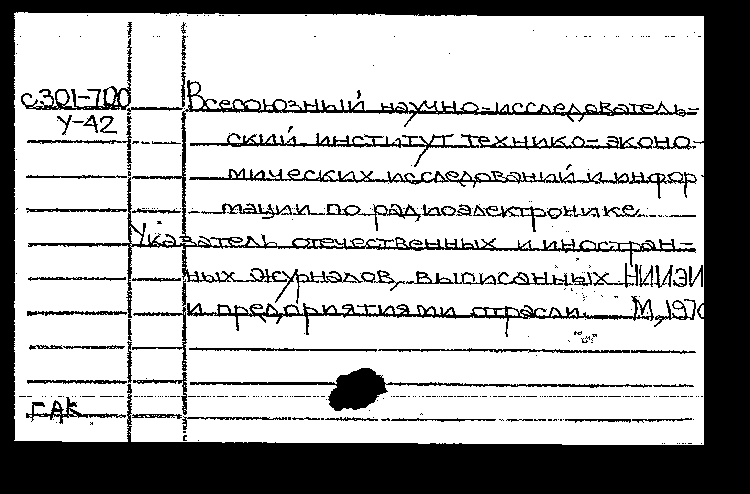 с.301-700 Всесоюзный научно-исследователь-
У-42 ский институт технико-эконо-
мических исследований и инфор
мации по радиоэлектронике.
Указатель отечественных и иностран-
ных журналов, выписанных НИИЭИ
и предприятиями отрасли. М., 1970
ГАК